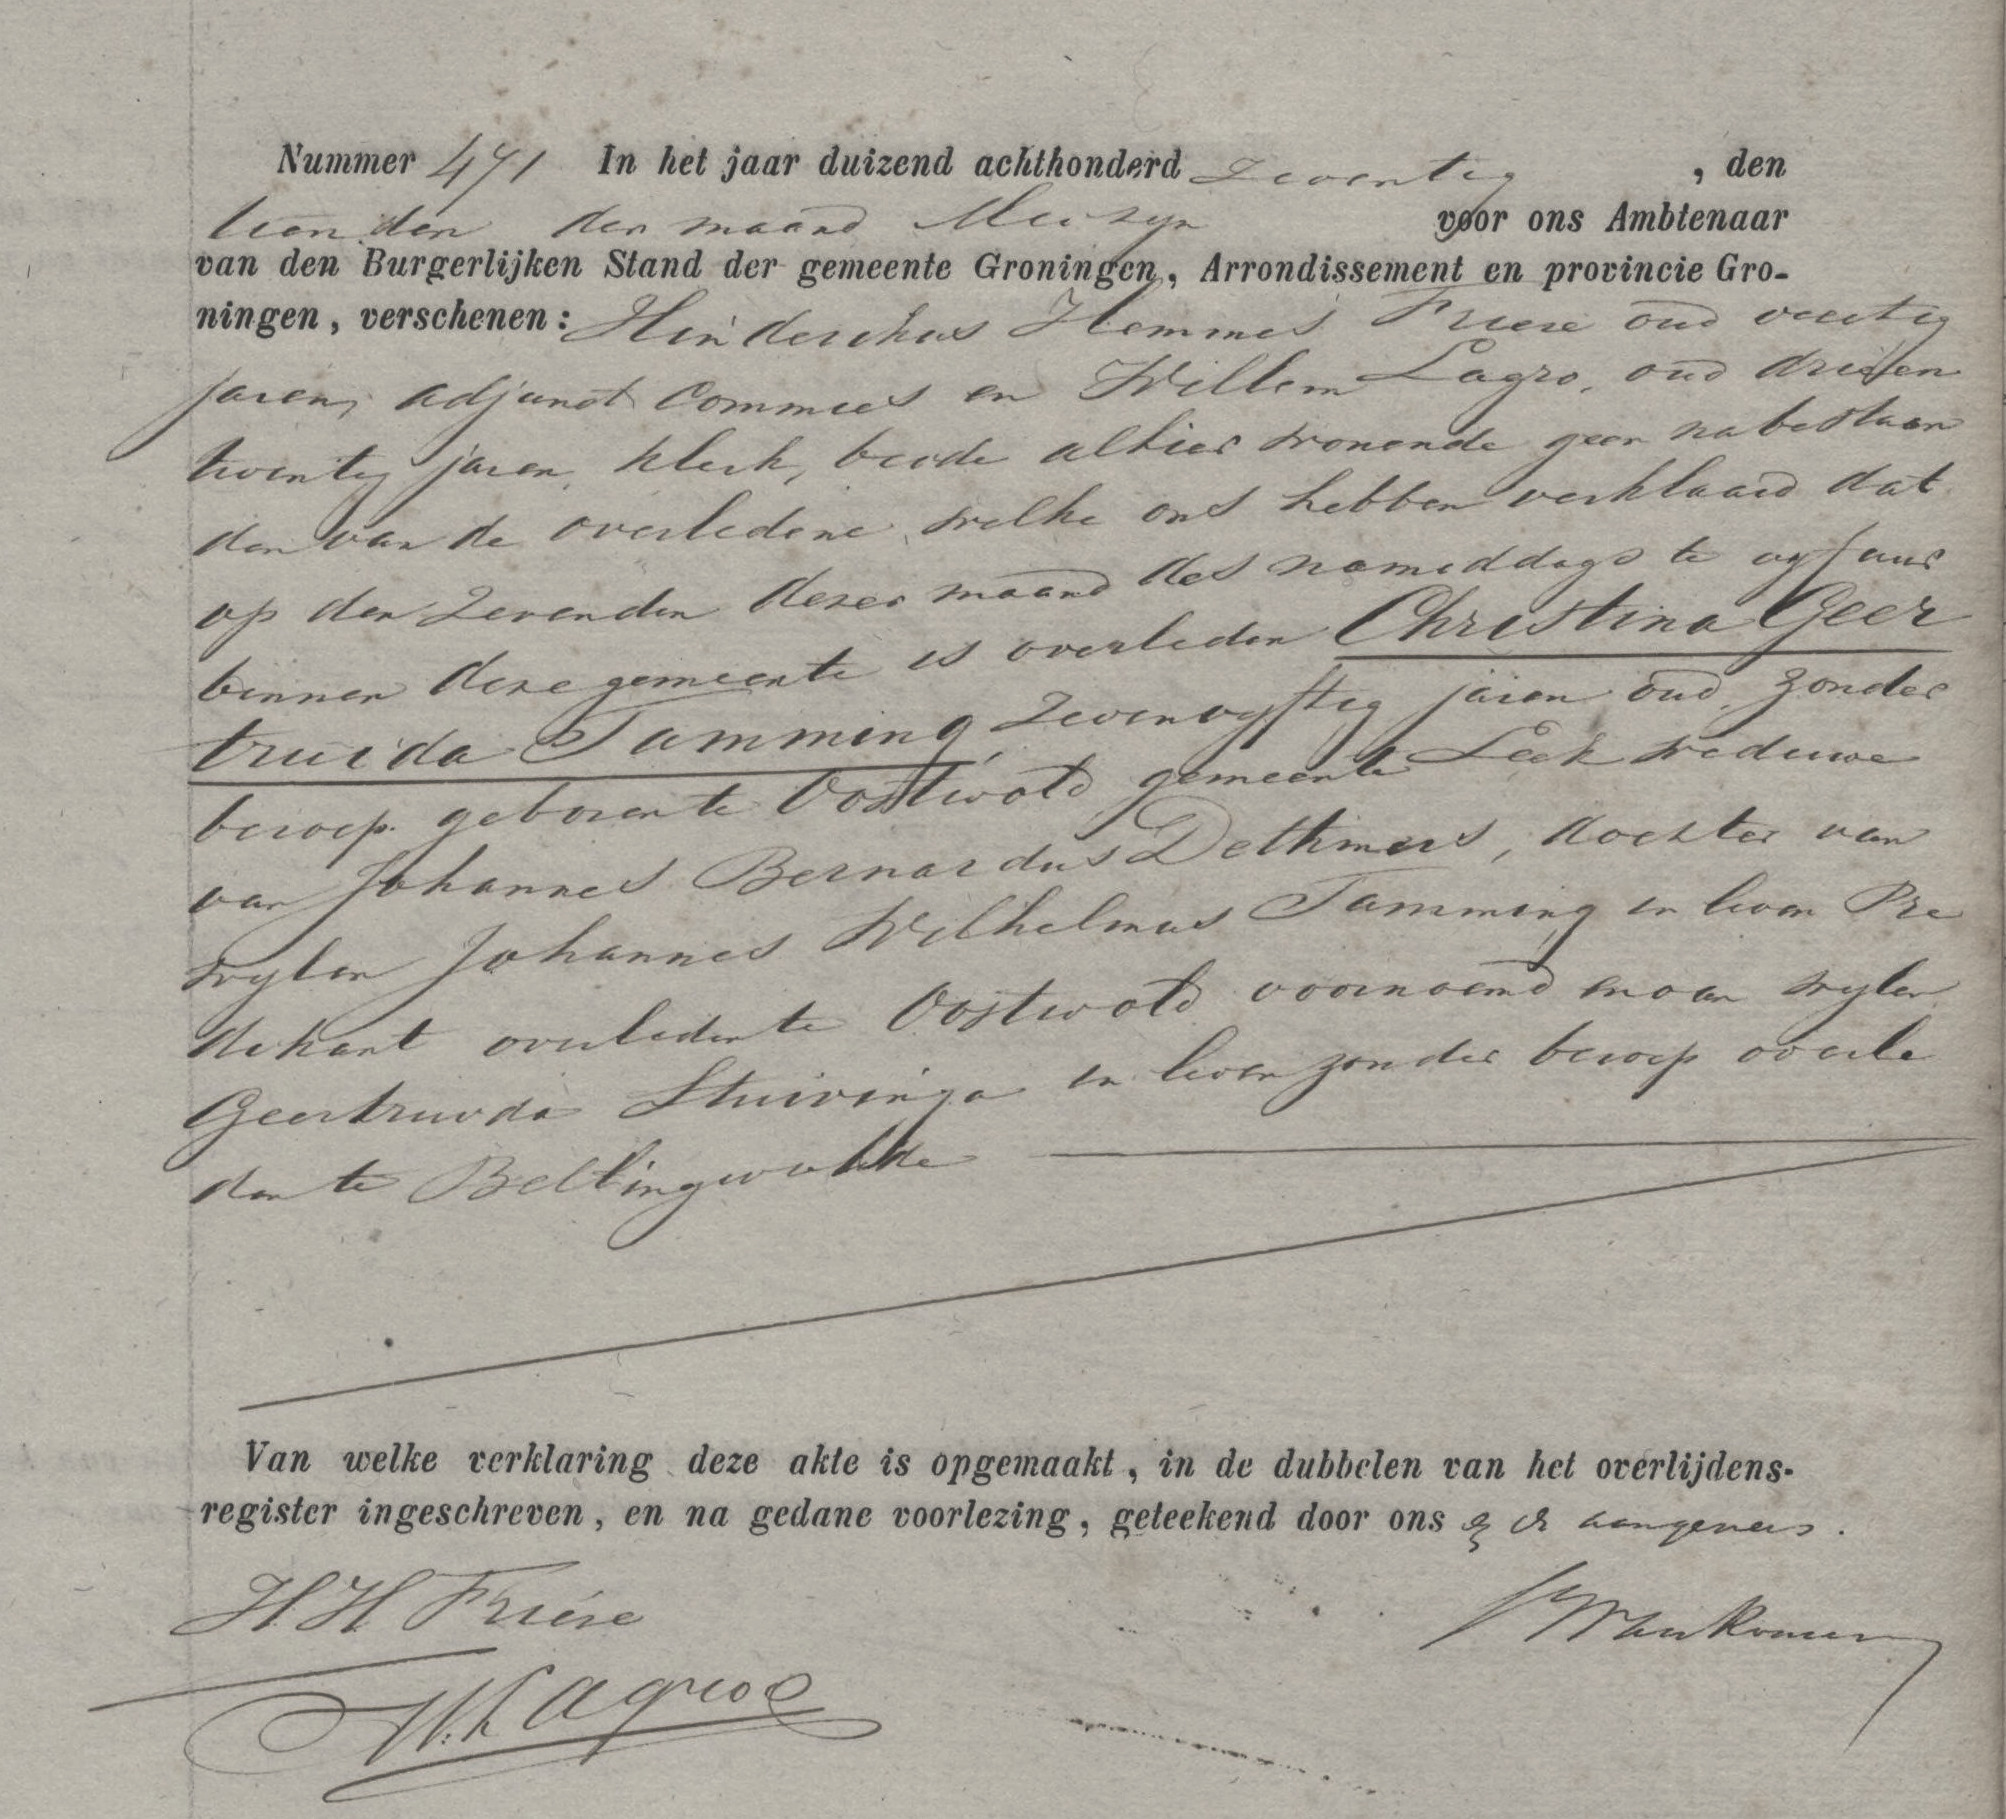 Nummer 471 In het jaar duizend achthonderd Zeventig , den
tienden der maand Mei zyn voor ons Ambtenaar
van den Burgerlijken Stand der gemeente Groningen, Arrondissement en provincie Gro-
ningen, verschenen: Hinderikus Hemmes Friese oud veertig
jaren, adjunct Commies en Willem Lagro, oud drieen
twintig jaren, klerk, beide alhier wonende geen nabestaan
den van de overledene, welke ons hebben verklaard dat
op den Zevenden dezer maand des namiddags te vyf uur
binnen deze gemeente is overleden Christina Geer
truida Tamming, Zevenvyftig jaren oud, zonder
beroep. geboren te Oostwold gemeente Leek weduwe
van Johannes Bernardus Dethmers, dochter van
wylen Johannes Wilhelmus Tamming in leven Pre
dikant overleden te Oostwold voornoemd en van wylen
Geertruida Stuivinga in leven zonder beroep overle
den te Bellingwolde
Van welke verklaring deze akte is opgemaakt, in de dubbelen van het overlijdens-
register ingeschreven, en na gedane voorlezing, geteekend door ons en de aangevers.
H H Friese
W. Lagro